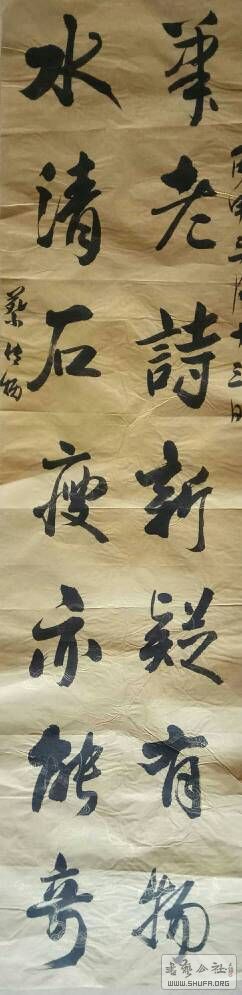 丙申月十三日
筆老詩新疑有物
水清石瘦亦能奇
蔡
書藝公社
WWW.SHUFA.ORG